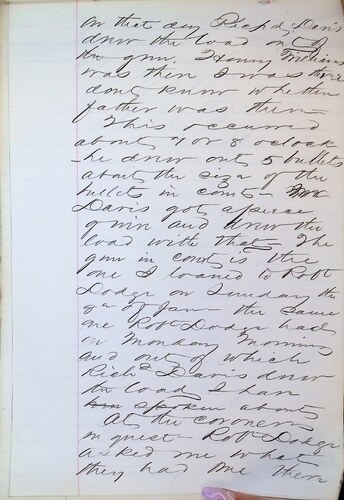 on that day Richd Davis
drew the load out of
the gun. Henry Williams
was there I was there
dont know whether
father was there—
This occurred
about 7 or 8 oclock
—he drew out 5 bullets
about the size of the
bullets in court—
Davis got a piece
and drew the
load with that— The
gun in court is the
one I loaned to Robt
Dodge on Sunday the
of Jan— the same
one Robt Dodge had
in Monday Morning
and out of which
Richd Davis drew
the load I have
spoken about
At the coroners
inquest— Robt Dodge
asked me what
they had me there